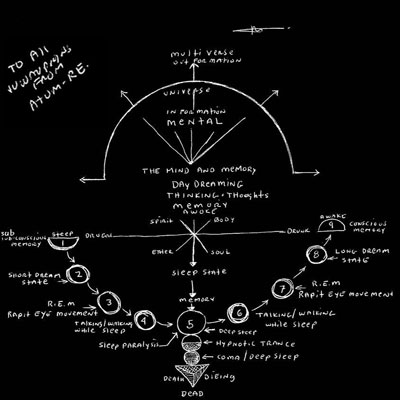 TO All
FROM
ATUM-RE.
MULTI VERSE
OUT FORMATION
UNIVERSE
IN FORMATION
MENTAL
THE MIND AND MEMORY
DAY DREAMING
THINKING + THOUGHTS
MEMORY
AWOKE
SPIRIT
BODY
SUB
SLEEP
CONSCIOUS
MEMORY
1
DRUNK
DRUNK
AWAKE
9
CONSCIOUS
MEMORY
ETHER
SOUL
SLEEP STATE
8
LONG DREAM
STATE
SHORT DREAM
STATE
2
7
R.E.M
RAPIT EYE MOVEMENT
R.E.M
RAPIT EYE MOVEMENT
3
MEMORY
TALKING/WALKING
WHILE SLEEP
4
5
6
TALKING/WALKING
WHILE SLEEP
SLEEP PARALYSIS
DEEP SLEEP
HYPNOTIC TRANCE
COMA / DEEP SLEEP
DEATH
DIEING
DEAD